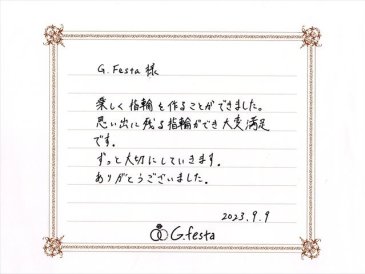 G.Festa 様
楽しく指輪を作ることができました。
思い出に残る指輪ができ大変満足
です。
ずっと大切にしていきます。
ありがとうございました。
2023.9.9
G.festa